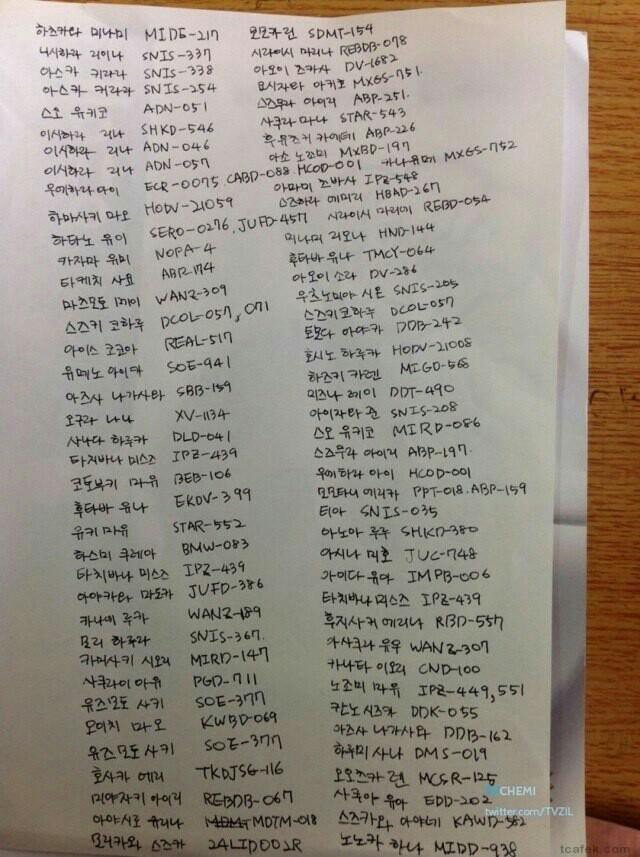 하즈키라 미나미 MIDE-217
니시하라 리이나 SNIS-337
아스카 키라라 SNIS-338
아스카 키라라 SNIS-254
스오 유키코 ADN-051
이시하라 리나 SHKD-546
이시하라 리나 ADN-046
이시하라 리나 ADN-057
우에하라 아이 ECR-0075, CABD-088. HCOD-001
하마사키 마오 HODV-21059
하타노 유이 SERO-0276, JUFD-457
카자마 유미 NOPA-4
타케치 사요 ABP-174
마츠모토 메이 WANZ-309
스즈키 코하루 DCOL-057, 071
아이스 코코아 REAL-517
유메노 아이카 SOE-941
아즈사 나가사와 SBB-159
오구라 나나 XV-1134
사나다 하루카 DLD-041
타치바나 미스즈 IPZ-439
코토부키 마유 BEB-106
후타바 유나 EKDV-399
유키 마유 STAR-552
하스미 쿠레아 BMW-083
타치바나 미스즈 IPZ-439
아야카와 마도카 JUFD-386
카나에 루카 WANZ-189
모리 하루라 SNIS-367.
카미사키 시오리 MIRD-147
사쿠라이 아유 PGD-711
유즈모토 사키 SOE-377
모이치 마오 KWBD-069
유즈모토 사키 SOE-377
호사카 에리 TKDJSG-116
미야자키 아이리 REBDB-067
아야시로 유리나 MDTM-018
모리카와 스즈카 24LID002R
모모카 린 SDMT-154
시라이시 마리나 REBDB-078
아오이 츠카사 DV-1682
요시자와 아키호 MXGS-751.
스즈무라 아이리 ABP-251.
사쿠라 마나 STAR-543
후유즈키 카에데 ABP-226
아소 노조미 MXBD-197
카나 유메 MXGS-752
아마미 츠바사 IPZ-548
스즈하라 에미리 HBAD-267
시라이시 마리에 REBD-054
미나미 리오나 HND-144
후타바 유나 TMCY-064
아오이 소라 DV-286
우츠노미야 시온 SNIS-205
스즈키 코하루 DCOL-057
토모다 아야카 DDB-242
호시노 하루카 HODV-21008
하즈키 카렌 MIGD-568
미즈나 레이 DDT-490
아이자와 준 SNIS-208
스오 유키코 MIRD-086
스즈무라 아이리 ABP-197.
우에하라 아이 HCOD-001
모모타니 에리카 PPT-018. ABP-159
티아 SNIS-035
아노아 루루 SHKD-380
아시나 미호 JUC-748
아이다 유아 IMPB-006
타치바나 미스즈 IPZ-439
후지사키 에리나 RBD-557
아사쿠라 유우 WANZ-307
카나타 이오리 CND-100
노조미 마유 IPZ-449, 551
칸노 시즈카 DDK-055
아즈사 나가사와 DDB-162
하루미 사나 DMS-019
오오즈카 렌 MCSR-125
사쿠아 유아 EDD-202
스즈카와 아야네 KAWD-582
노노카 하나 MIDD-938
CHEMI
twitter.com/TVZIL
tcafek.com